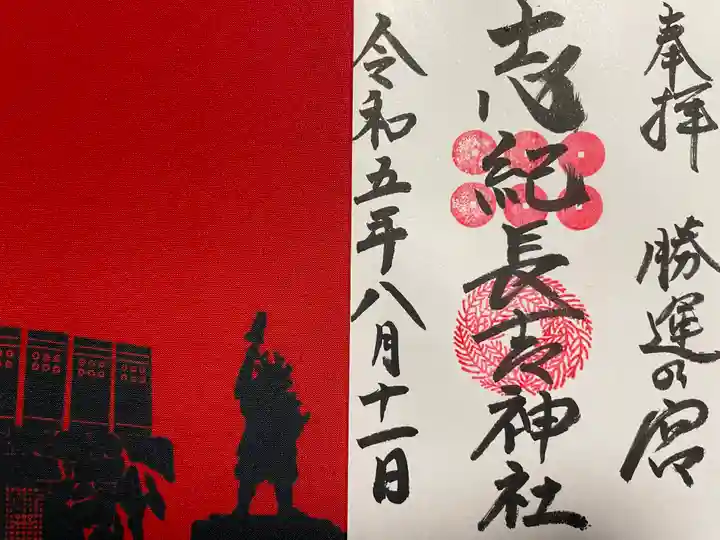 奉拝 勝運の宮
志紀長吉神社
令和五年八月十一日